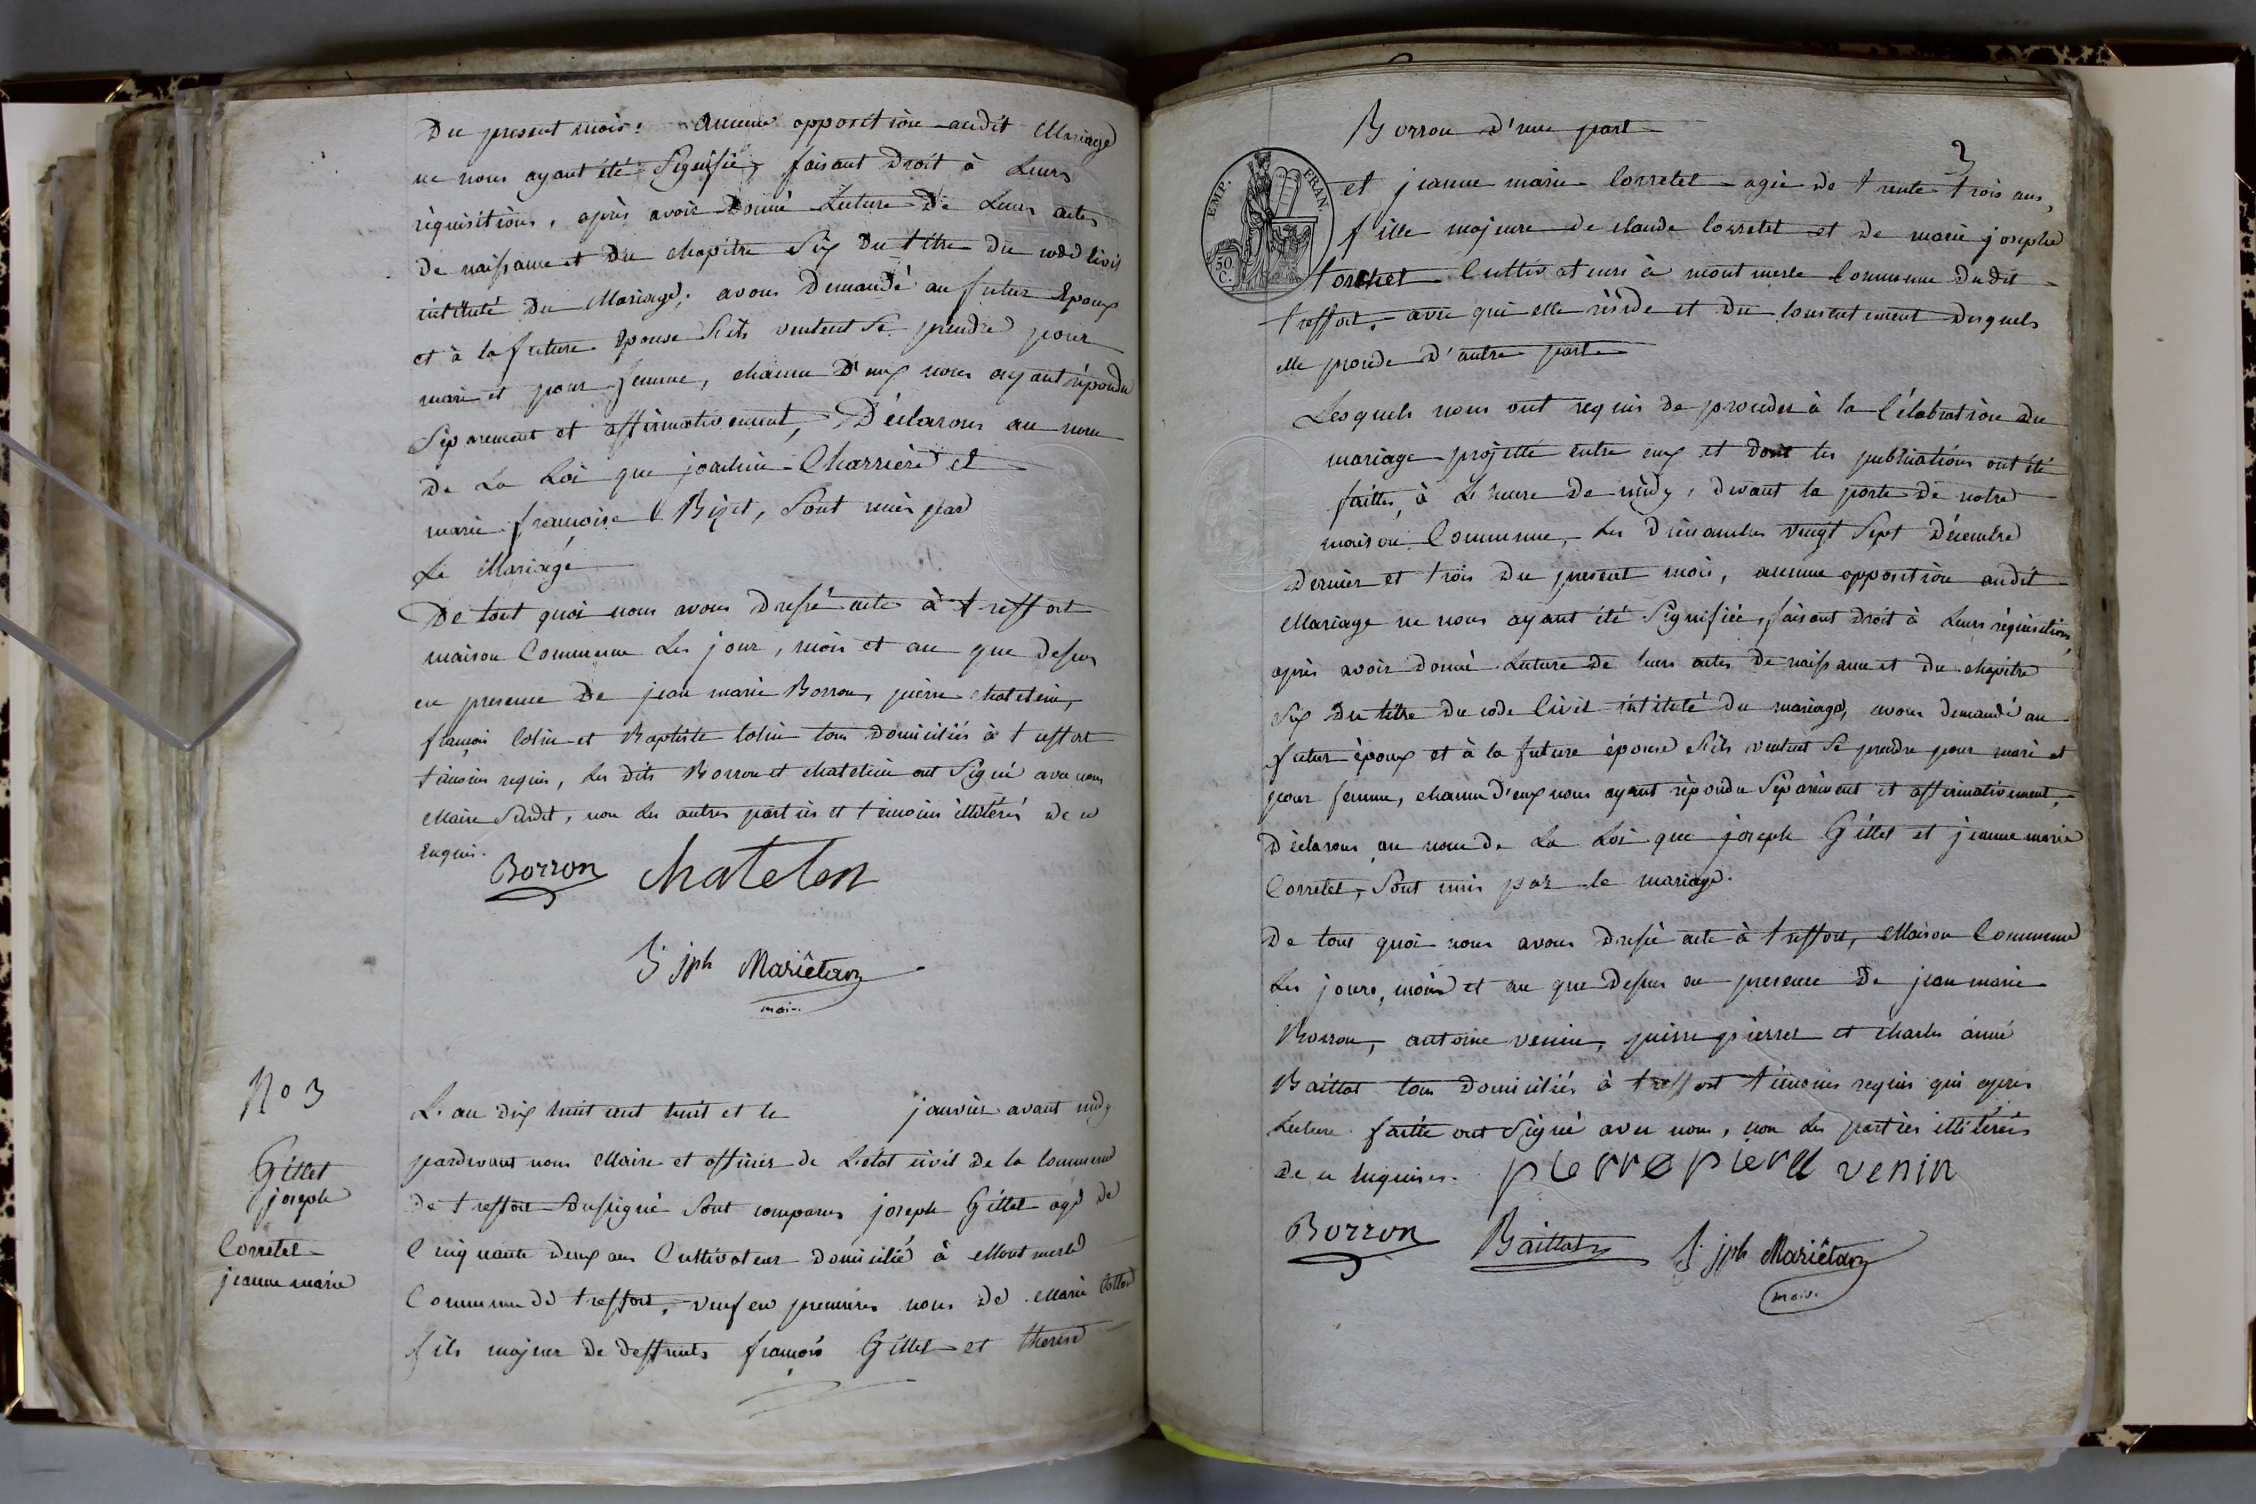 Du present mois: Aucune opposition audit Mariage
ne nous ayant été Signifié, faisant Droit à Leurs
réquisitions, après avoir Donné Lecture De Leurs actes
De naissance et Du chapitre Six Du titre Du code Civil
intitulé Du Mariage; avons Demandé au futur Epoux
et à la future Epouse S'ils veulent Se prendre pour
mari et pour femme, chacun D'eux nous ayant répondu
Séparement et affirmativement, Déclarons au nom
De La Loi que joachin Charriere et
marie françoise Bizet, Sont unis par
Le Mariage
De tout quoi nous avons Dressé acte à treffort
maison Commune Les jour, mois et an que Dessus
en presence De jean marie Borron, pierre chatelein,
françois Colin et Baptiste Colin tous Domiciliés à treffort
témoins requis, Les Dits Borron et chatelein ont Signé avec nous
Maire Susdit, non Les autres parties et témoins illitérés De ce
Enquis.
Borron chatelen
J. jph Mariêtan
maire
No 3
Gillet
joseph
Corretel
jeanne marie
L'an Dix huit cent huit et le janvier avant midy
pardevant nous Maire et officier de L'etat civil De la Commune
De treffort Soussigné Sont comparus joseph Gillet agé De
Cinquante Deux ans Cultivateur Domicilié à Montmerle
Commune de treffort, veuf en premieres noces De Marie
fils majeur De deffunts françois Gillet et therese
3
Borron D'une part
EMP. FRAN.
50 C.
et jeanne marie Corretel agée de trente trois ans,
fille majeure de claude Corretel et de marie josephe
Cultivateurs à montmerle Commune Dudit
treffort, avec qui elle réside et Du Consentement Desquels
elle procede D'autre part
Lesquels nous ont requis de proceder à la Célébration Du
mariage projetté entre eux et Dont les publications ont été
faittes, à L'heure De midy, Devant la porte De notre
maison Commune, Les Dimanches vingt Sept Décembre
Dernier et trois Du present mois, aucune opposition audit
Mariage ne nous ayant été Signifiée, faisant Droit à Leurs réquisitions,
après avoir donné Lecture De leurs actes De naissance et Du chapitre
Six Du titre Du code Civil intitulé Du mariage, avons demandé au
futur époux et à la future épouse S'ils veulent Se prendre pour mari et
pour femme, chacun D'eux nous ayant répondu Séparément et affirmativement,
Déclarons au nom De La Loi que joseph Gillet et jeanne marie
Corretel, Sont unis par le mariage.
De tout quoi nous avons Dressé acte à treffort, Maison Commune
Les jours, mois et an que Dessus en presence De jean marie
Borron, antoine venin, pierre pierrel et charles aimé
Baillat tous Domiciliés à treffort témoins requis qui après
Lecture faitte ont Signé avec nous, non Les parties illitérées
De ce Enquises. pierre pierel venin
Borron Baillat J. jph Mariêtan
maire